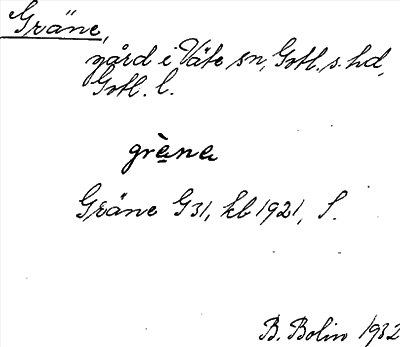 Gräne,
gård i Väte sn, Gotl. s. hd,
Gotl. l.
grèna
Gräne G31, kb 1921, S.
B. Bolin 1932